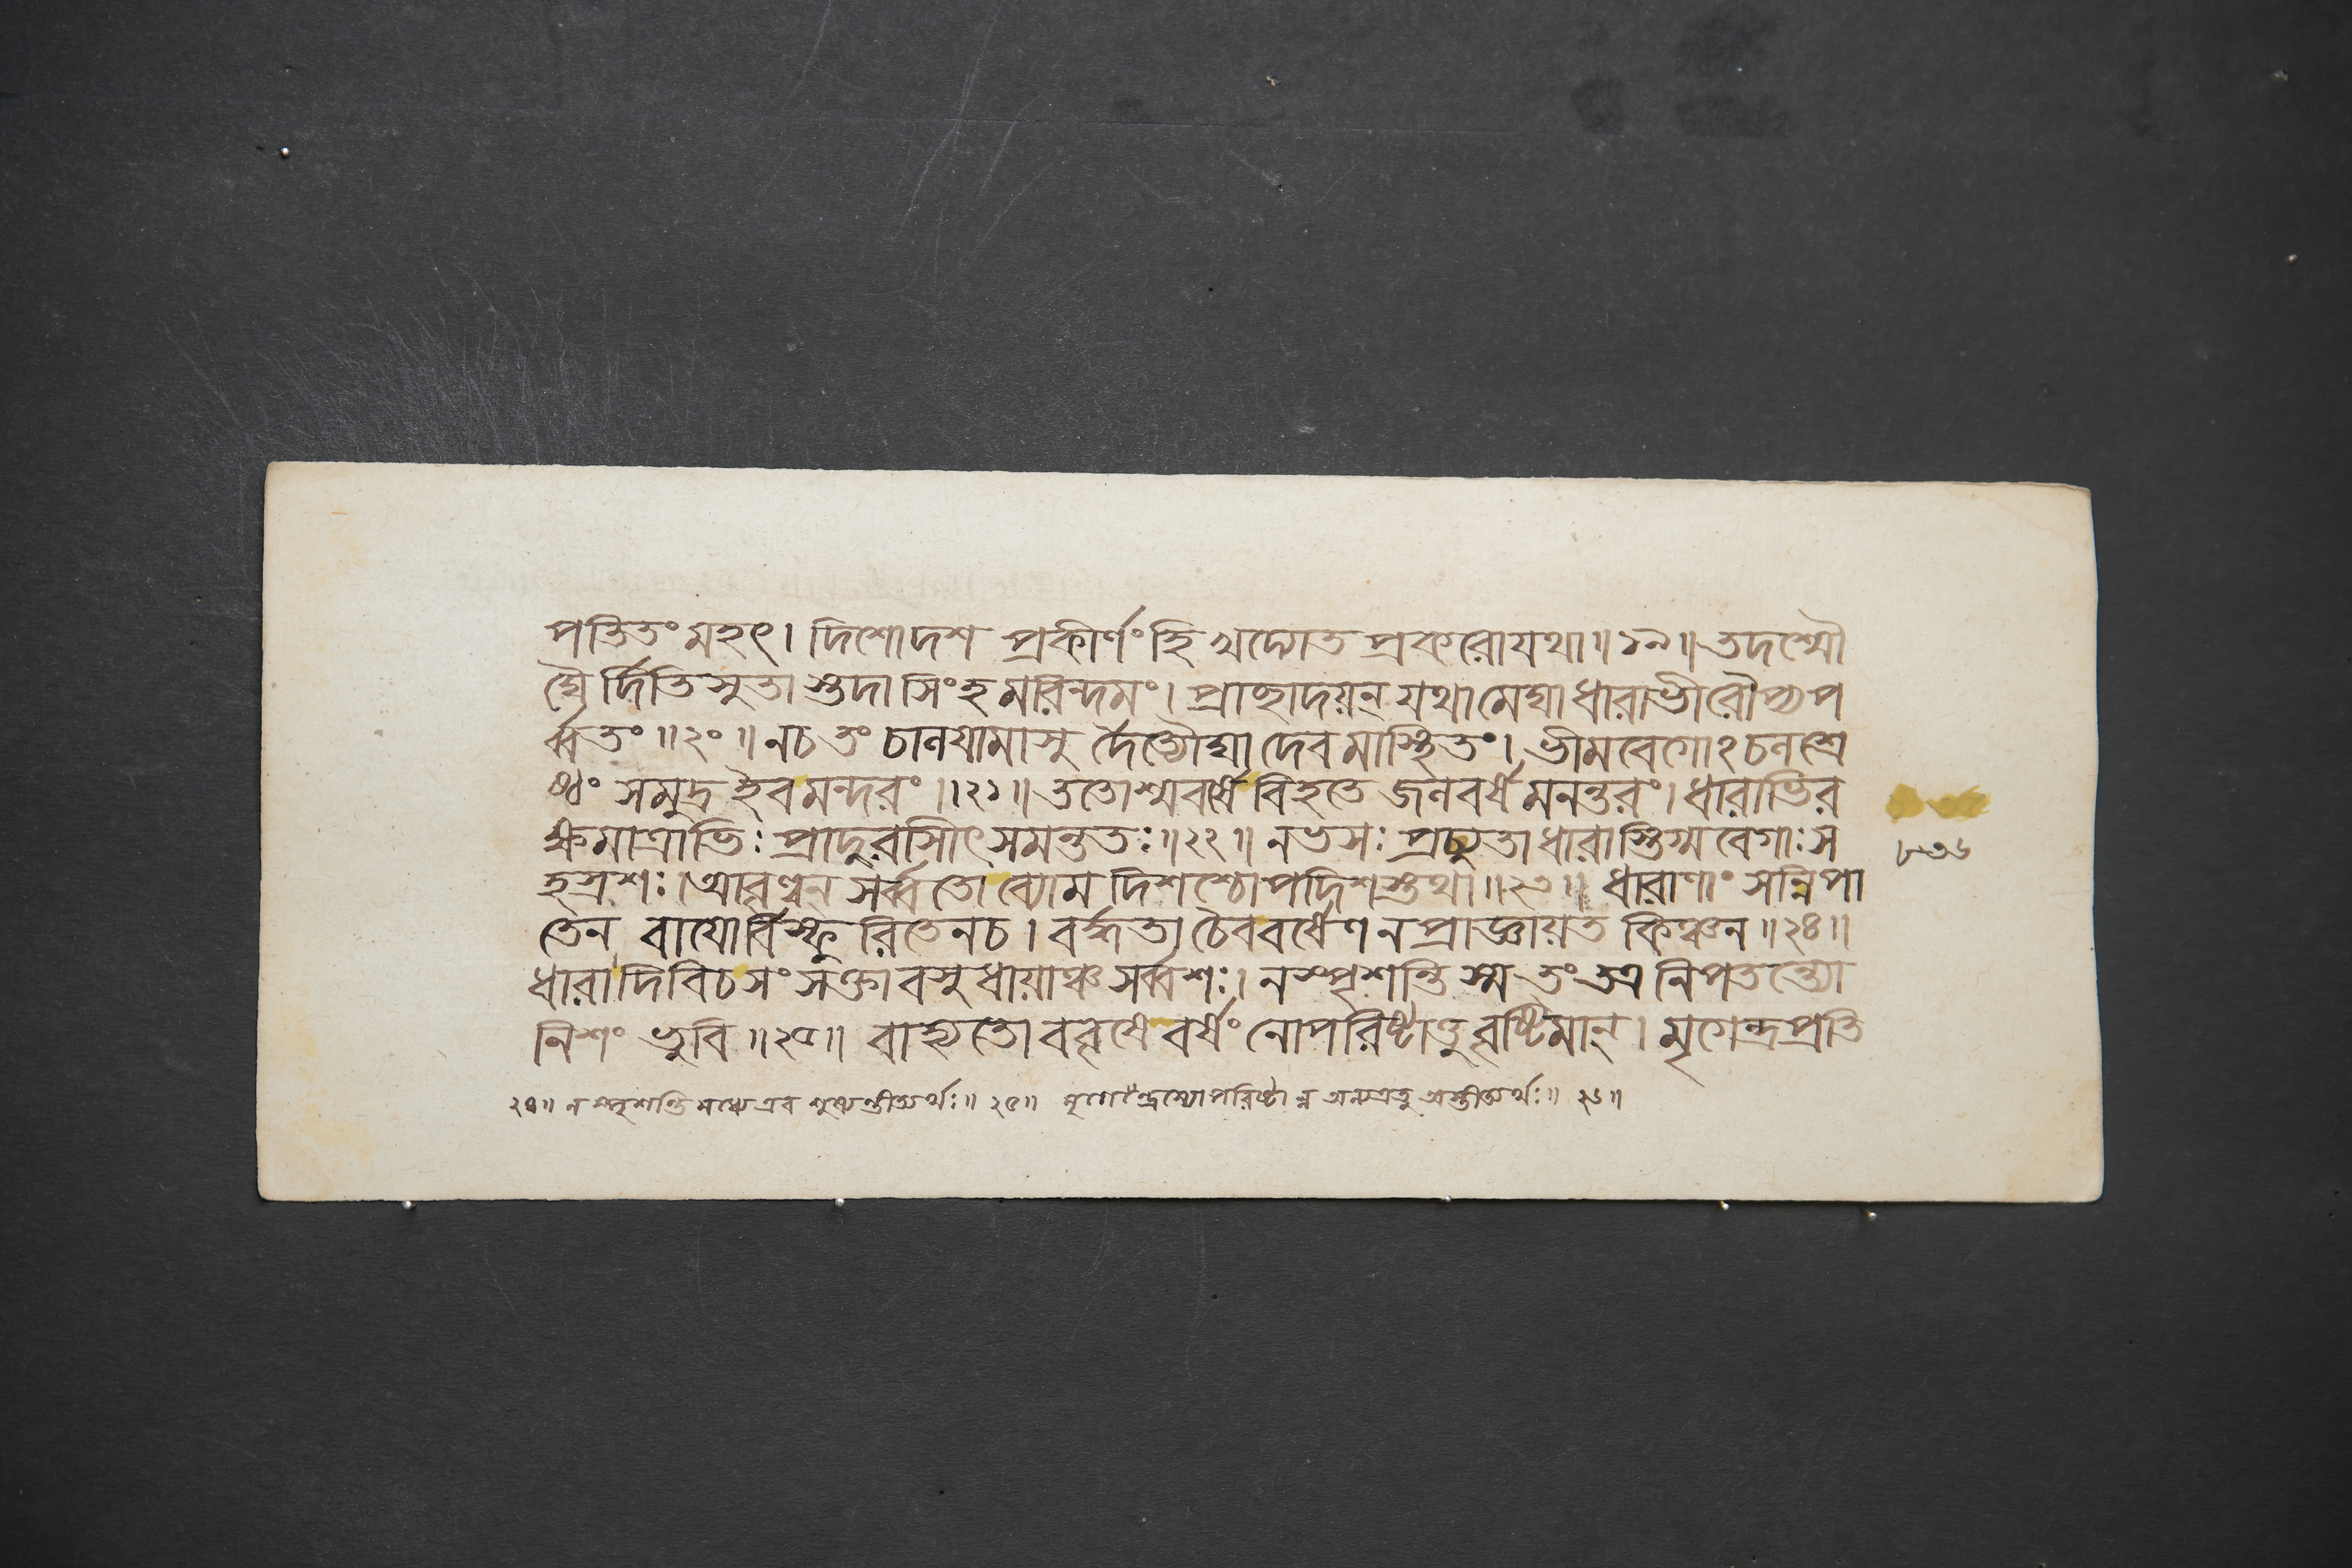 পতিতং মহৎ। দিশোদশ প্রকীর্ণং হি খদ্যোত প্রকরোযথা॥১৯॥তদশ্মৌ
ঘৈ র্দিতিসুতা স্তদা সিংহ মরিন্দমং। প্রাচ্ছাদয়ন্ যথামেঘা ধারাভীরৌপ্যপ
র্ব্বতং॥২০॥নচ তং চানয়ামাসু র্দৈত্যৌঘা দেবমাস্থিতং। ভীমবেগোঽচলশ্রে
ষ্ঠং সমুদ্র ইবমন্দরং॥২১॥ততোশ্মবর্ষে বিহতে জলবর্ষ মনন্তরং।ধারাভির
ক্ষমাত্রাভিঃ প্রাদুরাসীৎ সমন্ততঃ॥২২॥ নভসঃ প্রচ্যুতা ধারাস্তিগ্মবেগাঃ স
হস্রশঃ।আবৃণ্বন্ সর্ব্বতো ব্যোম দিশশ্চোপদিশস্তথা॥২৩॥ ধারাণাং সন্নিপা
তেন বায়োর্বিস্ফুরিতেনচ। বর্দ্ধতা চৈববর্ষেণ নপ্রাজ্ঞায়ত কিঞ্চন॥২৪॥
ধারা দিবিচসংসক্তা বসুধায়াঞ্চ সর্ব্বশঃ। নস্পৃশন্তি স্ম তং তত্র নিপতন্ত্যো
নিশং ভুবি॥২৫॥ বাহ্যতো ববৃষে বর্ষং নোপরিষ্টাত্তু বৃষ্টিমান্। মৃগেন্দ্রপ্রতি
২৪॥ ন স্পৃশন্তি মধ্যে এব শুষ্যন্তীত্যর্থঃ॥২৫॥ মৃগেন্দ্রস্যোপরিষ্টা ন্ন অন্যত্রতু অস্তীত্যর্থঃ॥২৬॥
৮৩৬